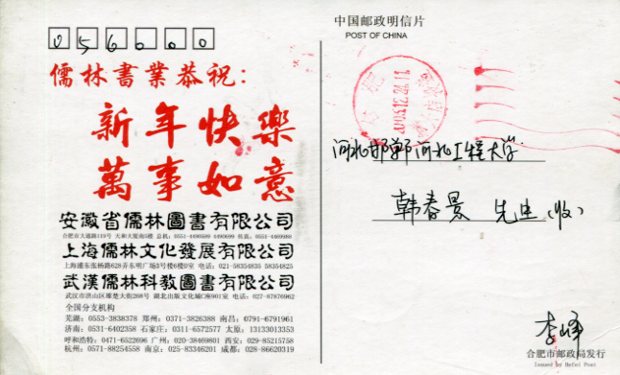 056000
儒林書業恭祝：
新年快樂
萬事如意
安徽省儒林圖書有限公司
合肥市大通路119号 大和大厦南5楼 总机：0551-4495589 4495699 传真：0551-4469980
上海儒林文化發展有限公司
上海浦东张杨路628弄东明广场3号楼6楼D室 电话：021-58354835 58354825
武漢儒林科教圖書有限公司
武汉市洪山区雄楚大街268号 湖北出版文化城C座901室 电话：027-87876962
全国分支机构
芜湖：0553-3838378 郑州：0371-3826388 南昌：0791-6791961
济南：0531-6402358 石家庄：0311-6572577 太原：13133013353
呼和浩特：0471-6522696 广州：020-38469801 西安：029-85215758
杭州：0571-88254558 南京：025-83346201 成都：028-86620319
中国邮政明信片
POST OF CHINA
河北邯郸河北工程大学
韩春景 先生（收）
李峰
合肥市邮政局发行
Issued by Hefei Post